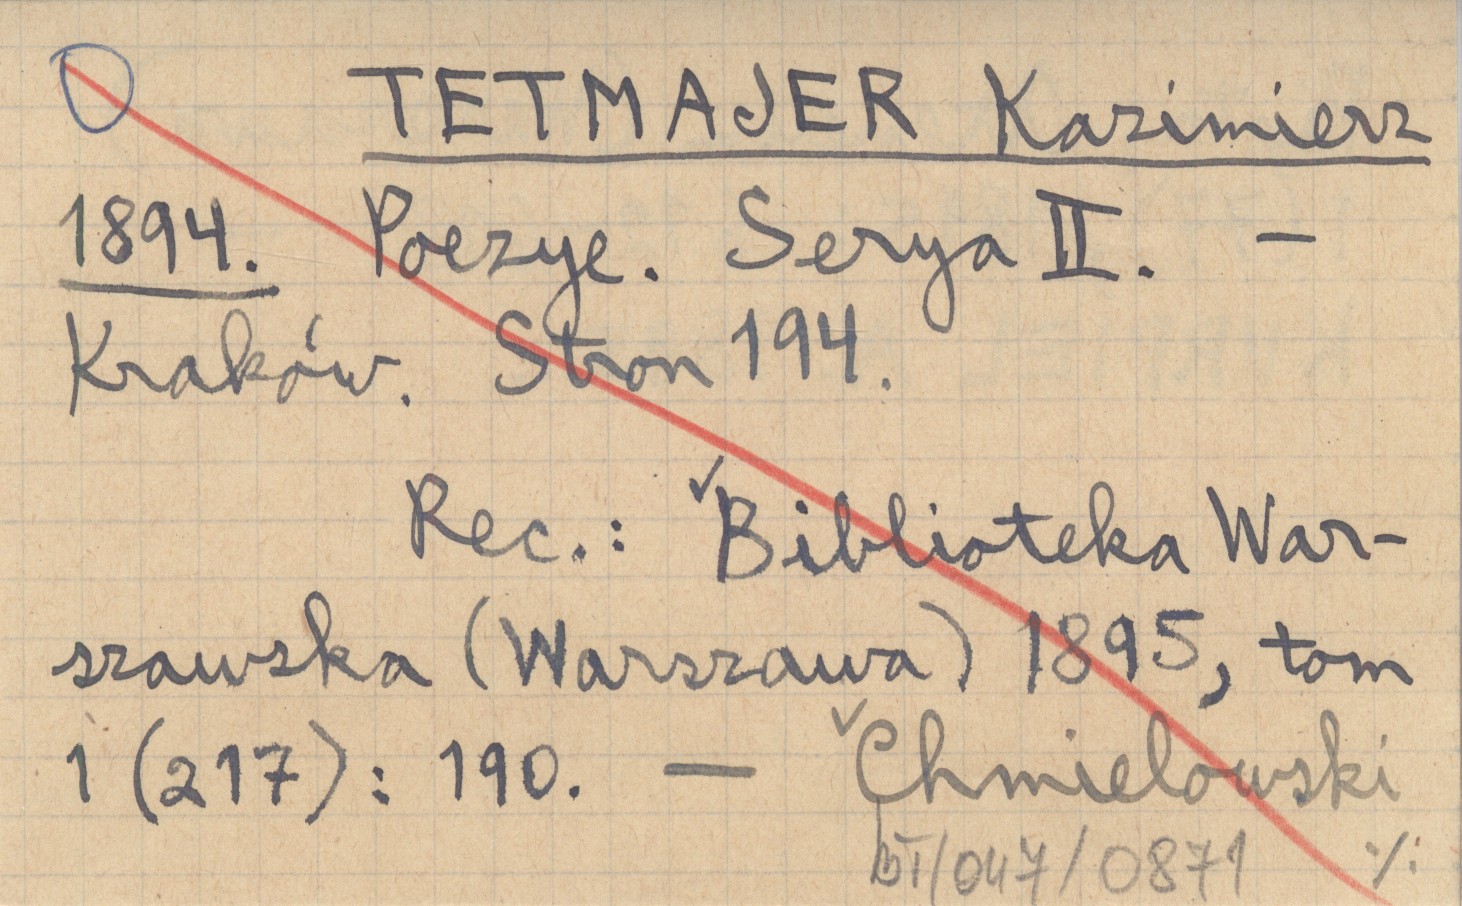 TETMAJER Kazimierz
1894. Poezye. Serya II. –
Kraków. Stron 194.
Rec.: ✓Biblioteka War-
szawska (Warszawa) 1895, tom
1 (217): 190. — ✓Chmielowski
/047/0871 ./.